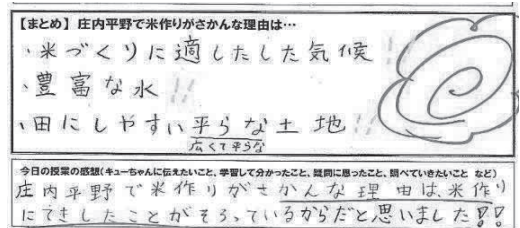 【まとめ】庄内平野で米作りがさかんな理由は…
、米づくりに適したした気候!!
、豊富な水!!
、田にしやすい平らな土地!!
広くて平らな
今日の授業の感想(キューちゃんに伝えたいこと、学習して分かったこと、疑問に思ったこと、調べていきたいこと など)
庄内平野で米作りがさかんな理由は、米作り
にてきしたことがそろっているからだと思いました!!